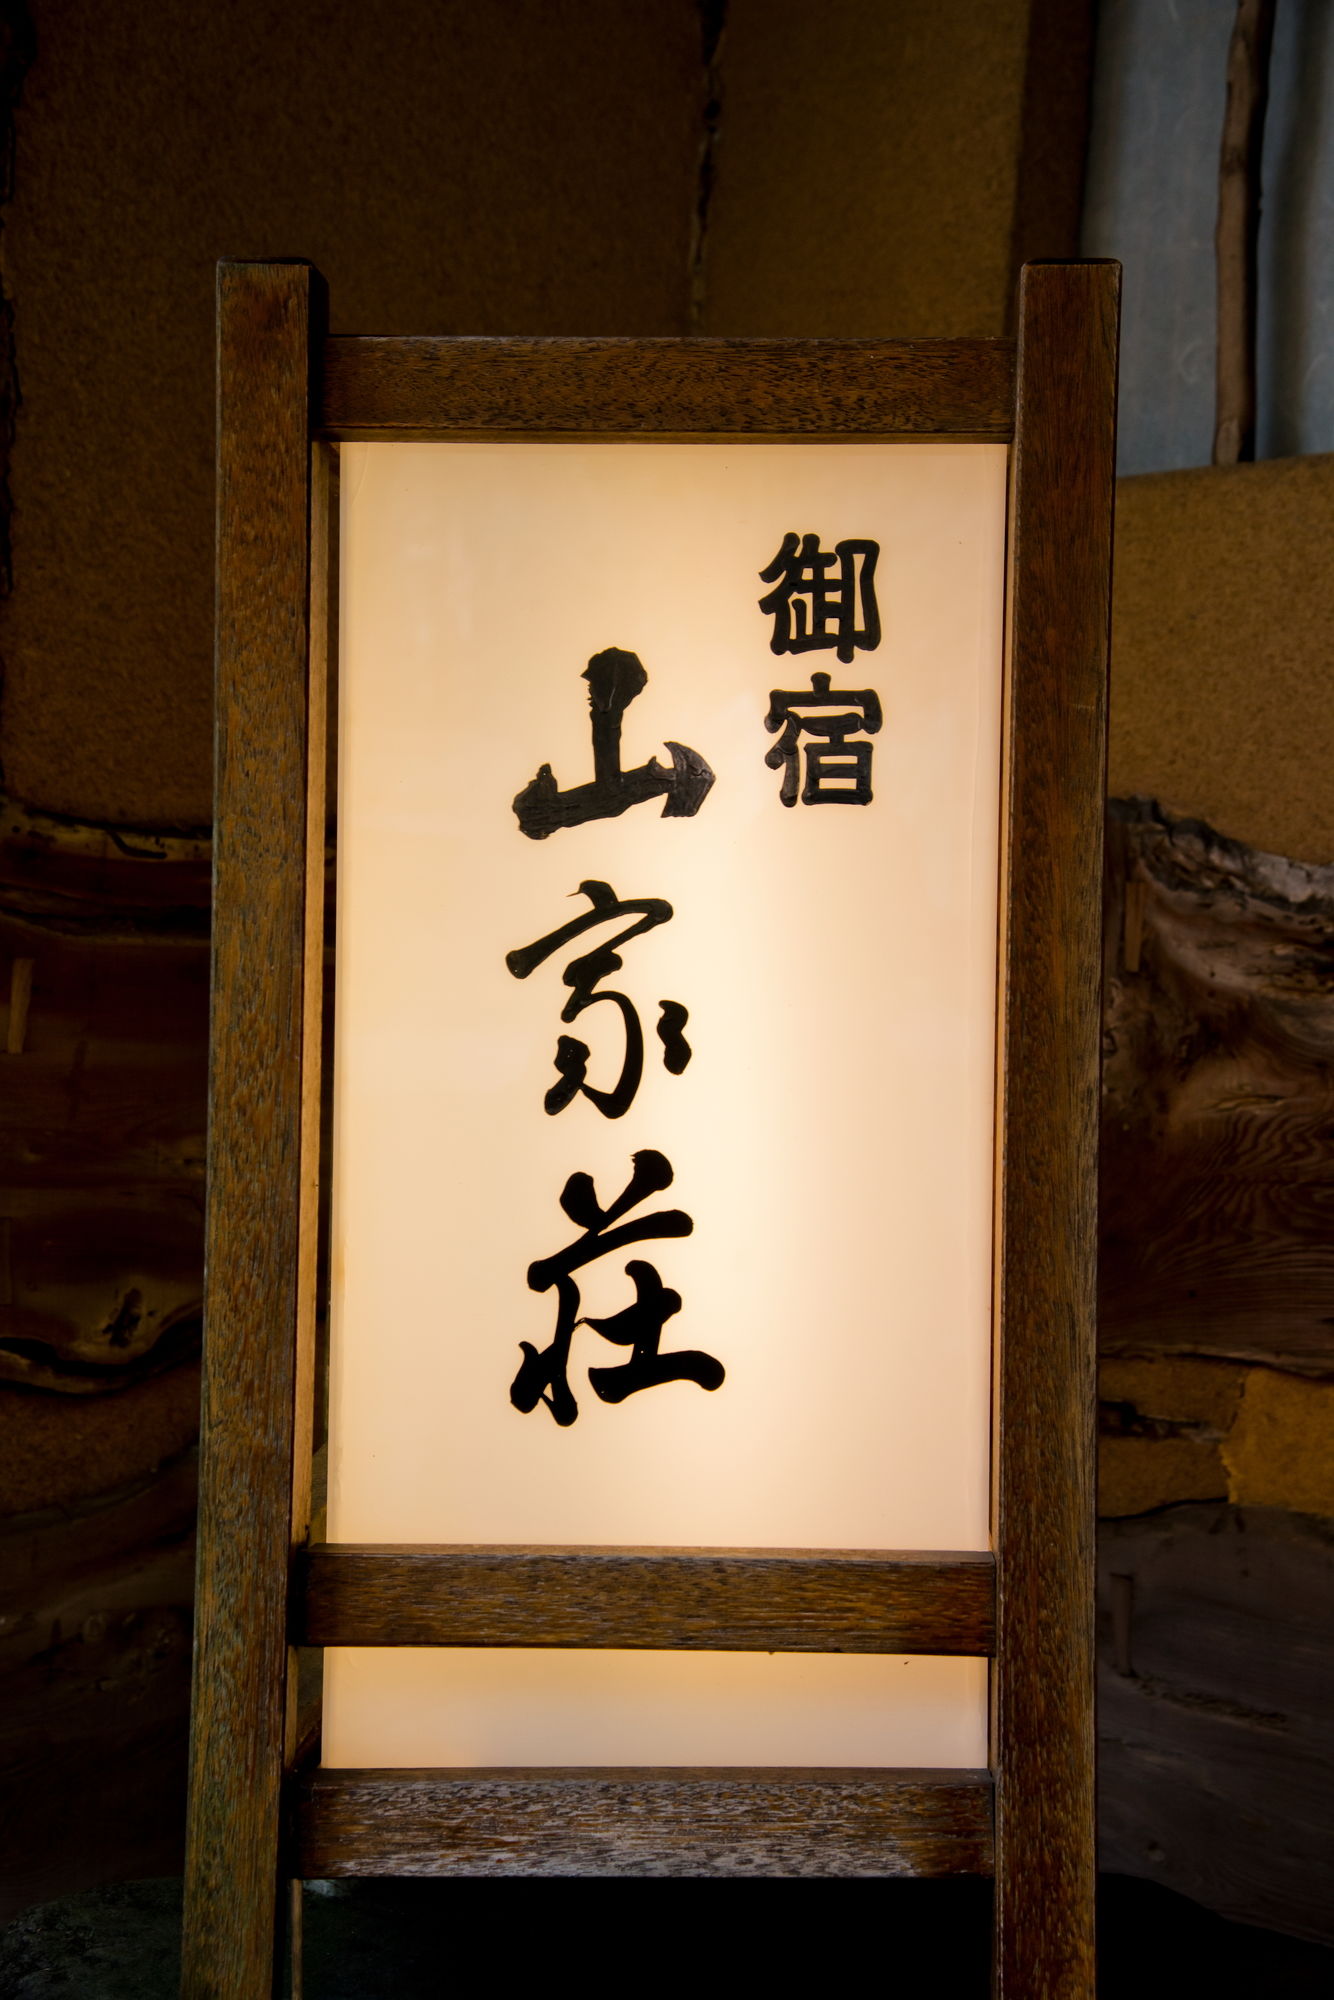 御宿
山家荘